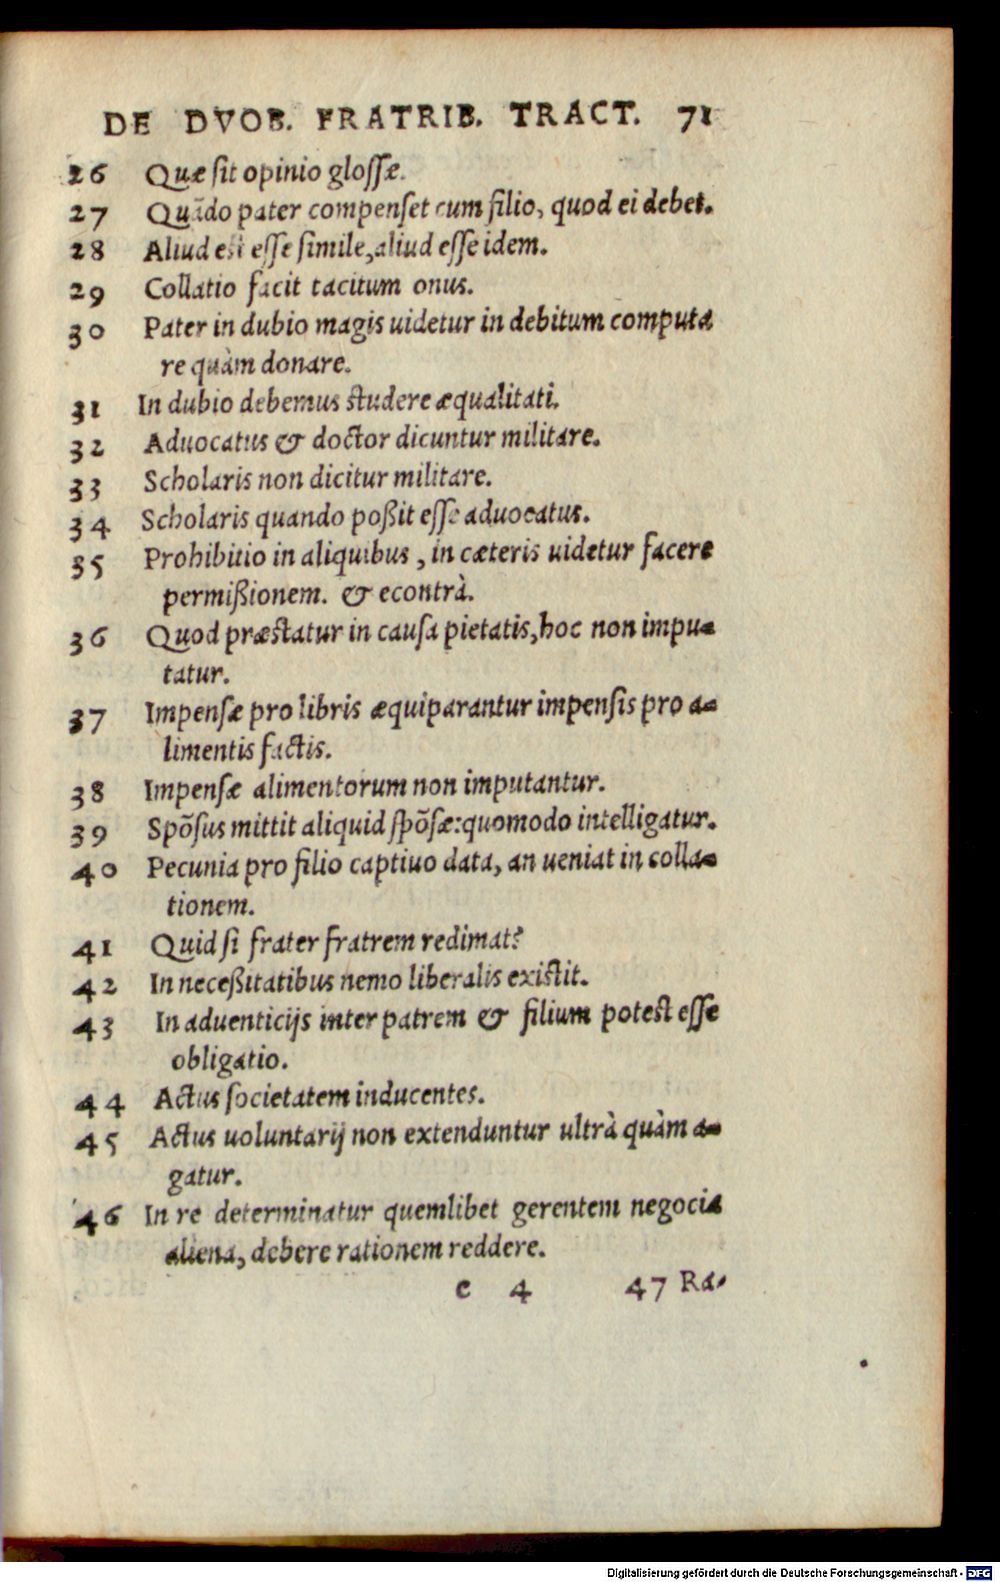 DE DVOB. FRATRIB. TRACT. 71
26 Quæ sit opinio glossæ.
27 Quãdo pater compenset cum filio, quod ei debet.
28 Aliud est esse simile, aliud esse idem.
29 Collatio facit tacitum onus.
30 Pater in dubio magis uidetur in debitum computa
re quàm donare.
31 In dubio debemus studere æqualitati.
32 Aduocatus & doctor dicuntur militare.
33 Scholaris non dicitur militare.
34 Scholaris quando poßit esse aduocatus.
35 Prohibitio in aliquibus, in cæteris uidetur facere
permißionem. & econtrà.
36 Quod præstatur in causa pietatis, hoc non impu-
tatur.
37 Impensæ pro libris æquiparantur impensis pro a-
limentis factis.
38 Impensæ alimentorum non imputantur.
39 Spõsus mittit aliquid spõsæ: quomodo intelligatur.
40 Pecunia pro filio captiuo data, an ueniat in colla-
tionem.
41 Quid si frater fratrem redimat?
42 In neceßitatibus nemo liberalis existit.
43 In aduenticijs inter patrem & filium potest esse
obligatio.
44 Actus societatem inducentes.
45 Actus uoluntarij non extenduntur ultrà quàm a-
gatur.
46 In re determinatur quemlibet gerentem negocia
aliena, debere rationem reddere.
e 4 47 Ra-
Digitalisierung gefördert durch die Deutsche Forschungsgemeinschaft - DFG